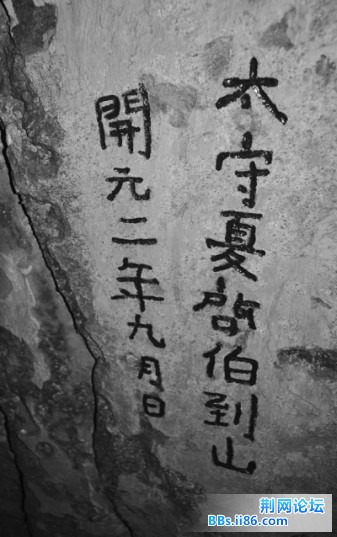 太守夏啓伯到此
開元二年九月日
荆网论坛
BBs.ii86.com